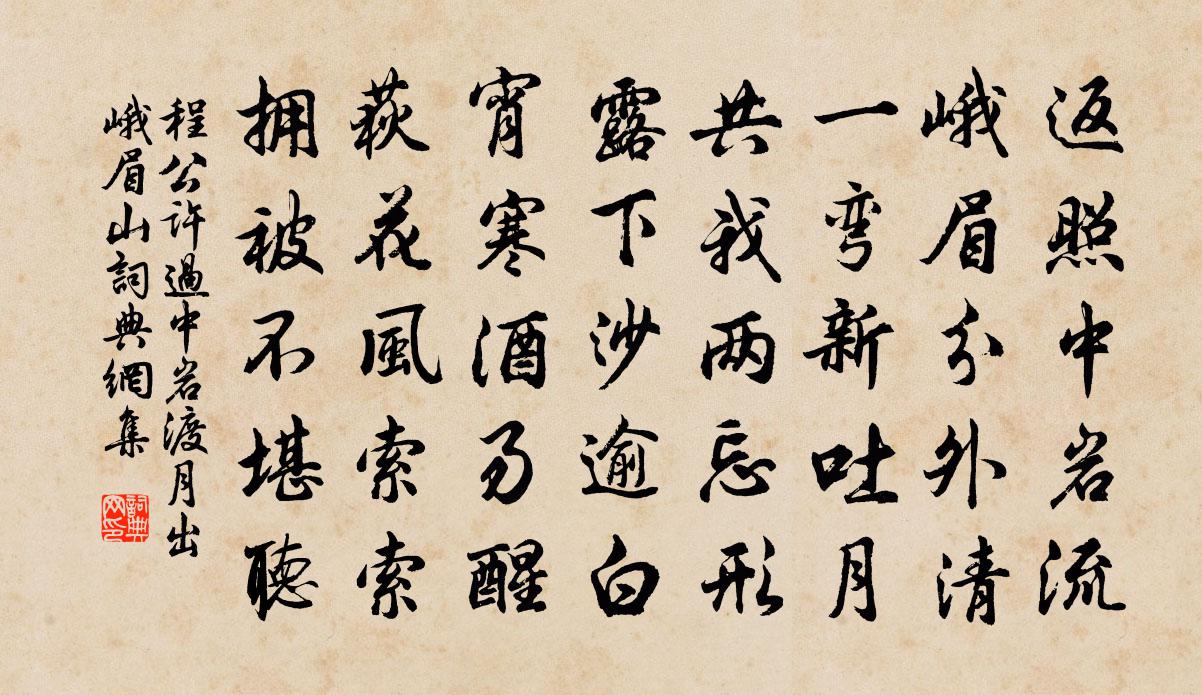 返照中岩流
峨眉分外清
一弯新吐月
共我两忘形
露下沙逾白
宵寒酒易醒
荻花風索索
拥被不堪聽
程公许過中岩渡月出
峨眉山詞典網集
詞典網印